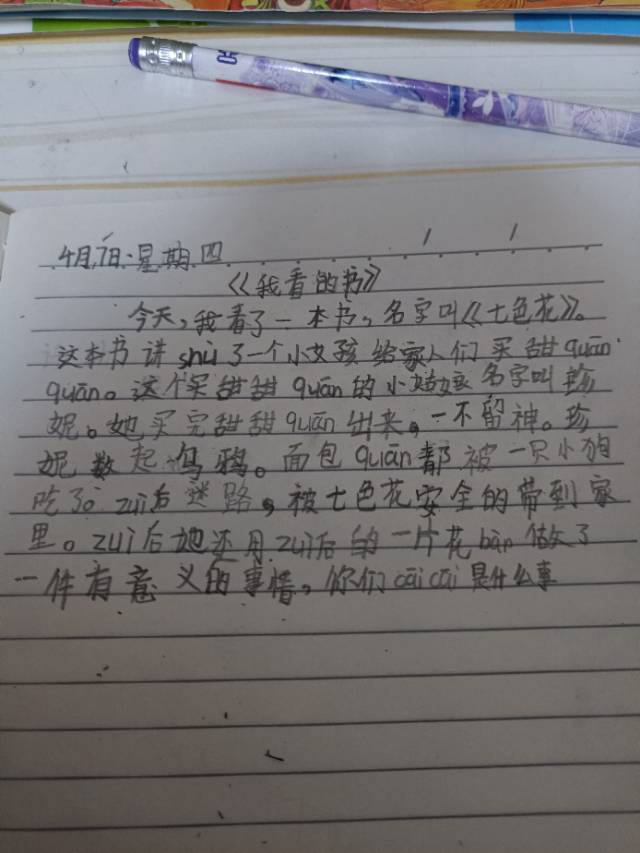 4月7日.星期四
《我看的书》
今天,我看了一本书,名字叫《七色花》。
这本书讲shù了一个小女孩给家人们买甜quān
quān。这个买甜甜quān的小姑娘名字叫珍
妮。她买完甜甜quān出来,一不留神。珍
妮数起乌鸦。面包quān都被一只小狗
吃了。zuì后迷路,被七色花安全的带到家
里。zuì后她还用zuì后的一片花bàn做了
一件有意义的事情,你们cāicāi是什么事